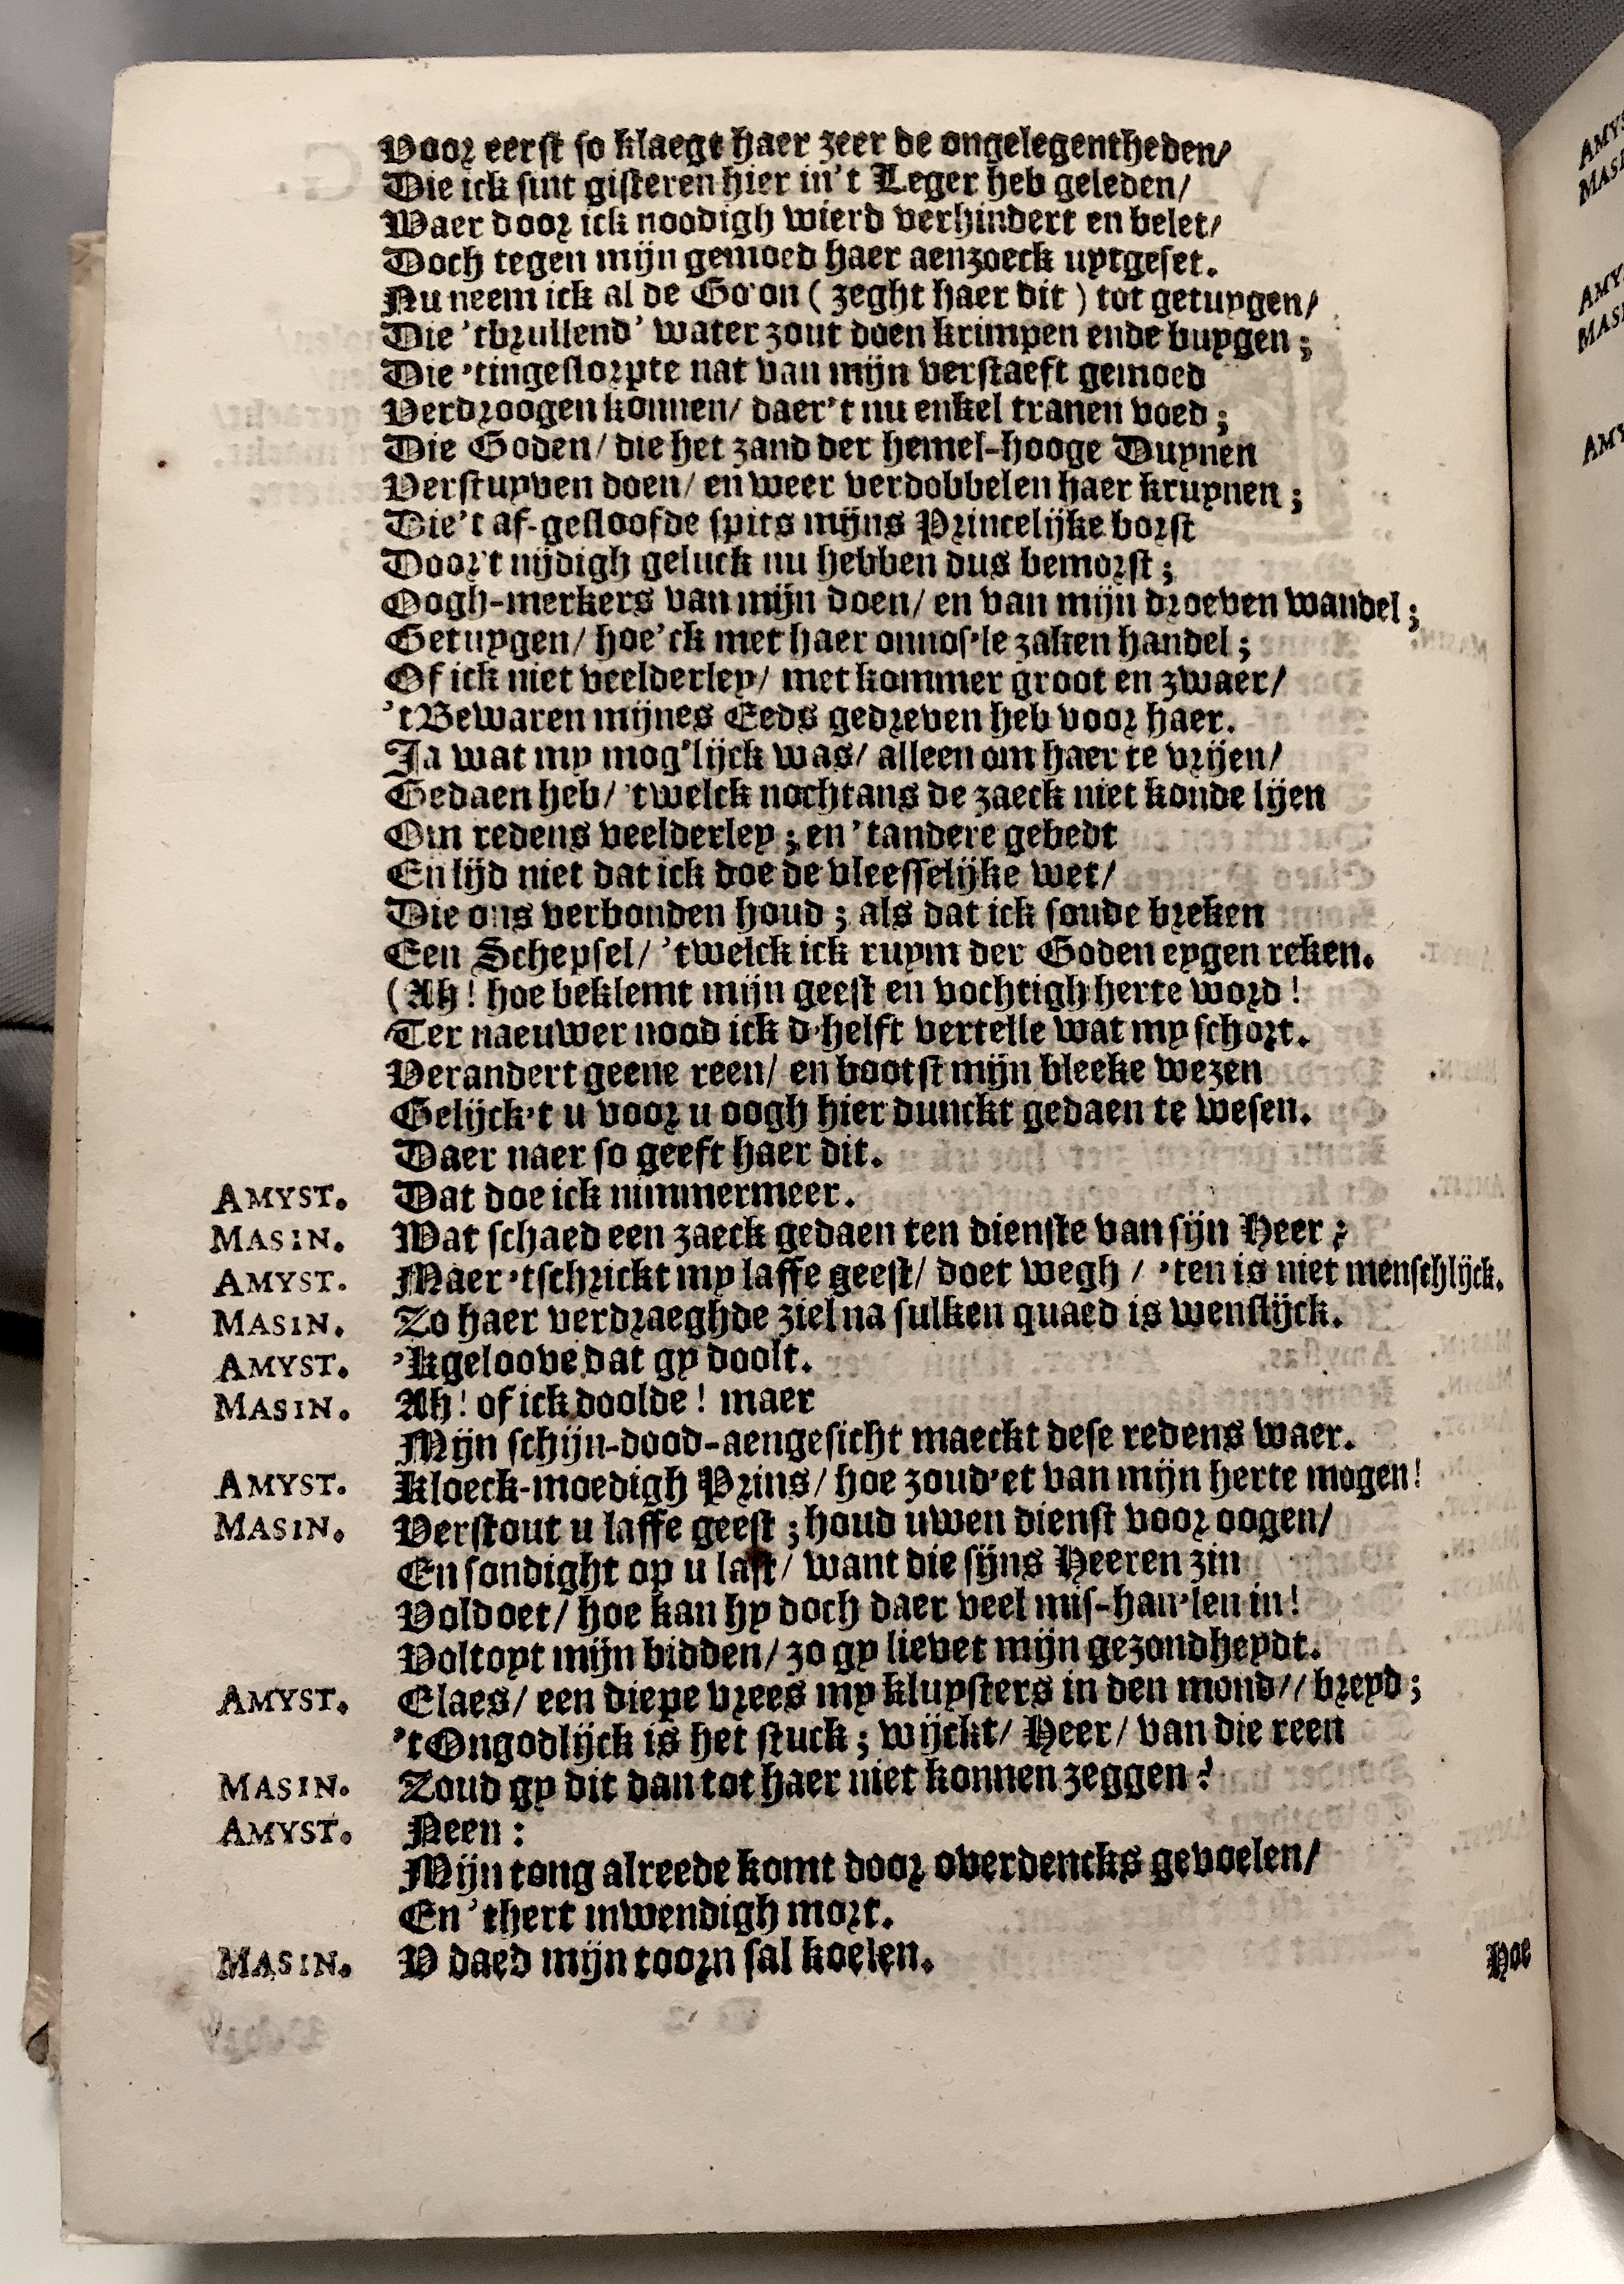 Voor eerst so klaegt haer zeer de ongelegentheden/
Die ick sint gisteren hier in't Leger heb geleden/
Waer door ick noodigh wierd verhindert en belet/
Doch tegen mijn gemoed haer aenzoeck uytgeset.
Nu neem ick al de Go'on ( zeght haer dit ) tot getuygen/
Die 'tbrullend' water zout doen krimpen ende buygen ;
Die 'tingeslorpte nat van mijn verstaeft gemoed
Verdroogen konnen/ daer't nu enkel tranen voed ;
Die Goden/ die het zand der hemel-hooge Duynen
Verstuyven doen/ en weer verdobbelen haer kruynen ;
Die't af-gesloofde spits mijns Princelijke borst
Door't nijdigh geluck nu hebben dus bemorst ;
Oogh-merkers van mijn doen/ en van mijn droeven wandel ;
Getuygen/ hoe'ck met haer onnos'le zaken handel ;
Of ick niet veelderley/ met kommer groot en zwaer/
't Bewaren mijnes Eeds gedreven heb voor haer.
Ja wat my mog'lijck was/ alleen om haer te vrijen/
Gedaen heb/ 'twelck nochtans de zaeck niet konde lijen
Om redens veelderley ; en 'tandere gebedt
En lijd niet dat ick doe de vleesselijke wet/
Die ons verbonden houd ; als dat ick soude breken
Een Schepsel/ 'twelck ick ruym der Goden eygen reken.
(Ah ! hoe beklemt mijn geest en vochtigh herte word !
Ter naeuwer nood ick d'helft vertelle wat my schort.
Verandert geene reen/ en bootst mijn bleeke wezen
Gelijck't u voor u oogh hier dunckt gedaen te wesen.
Daer naer so geeft haer dit.
AMYST. Dat doe ick nimmermeer.
MASIN. Wat schaed een zaeck gedaen ten dienste van sijn Heer ?
AMYST. Maer 'tschrickt my laffe geest/ doet wegh / 'ten is niet menschlijck.
MASIN. Zo haer verdraeghde ziel na sulken quaed is wenslijck.
AMYST. 'K geloove dat gy doolt.
MASIN. Ah ! of ick doolde ! maer
Mijn schijn-dood-aengesicht maeckt dese redens waer.
AMYST. Kloeck-moedigh Prins/ hoe zoud'et van mijn herte mogen !
MASIN. Verstout u laffe geest ; houd uwen dienst voor oogen/
En sondight op u last/ want die sijns Heeren zin
Voldoet/ hoe kan hy doch daer veel mis-han'len in !
Voltoyt mijn bidden/ zo gy lievet mijn gezondheydt.
AMYST. Elaes/ een diepe vrees my kluysters in den mond// breyd ;
't Ongodlijck is het stuck ; wijckt/ Heer/ van die reen
MASIN. Zoud gy dit dan tot haer niet konnen zeggen ?
AMYST. Neen :
Mijn tong alreede komt door overdencks gevoelen/
En 'thert inwendigh mort.
MASIN. V daed mijn toorn sal koelen.
Hoe